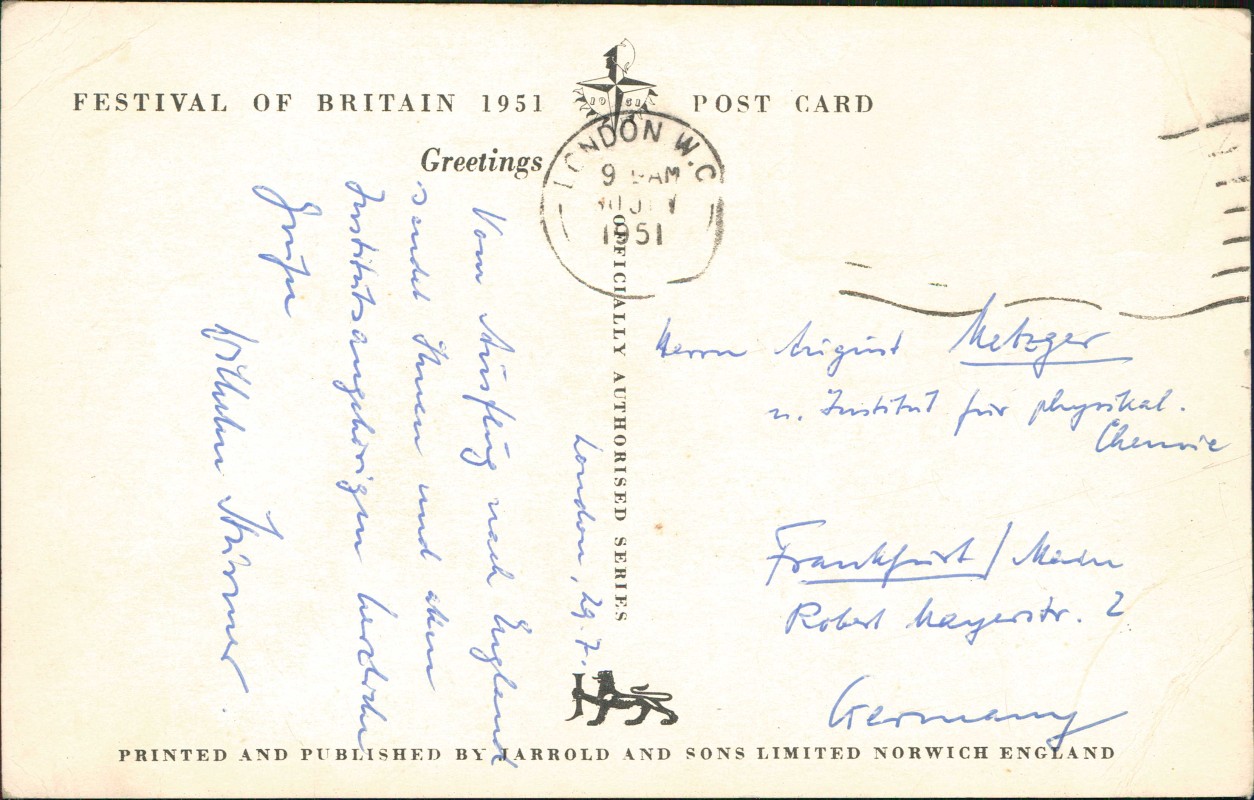 FESTIVAL OF BRITAIN 1951
POST CARD
Greetings
LONDON W.C
9 AM
1951
OFFICIALLY AUTHORISED SERIES
London, 29.7.
Vom Ausflug nach England
sendet Ihnen und allen
Institutsangehörigen herzliche
Grüße
Wilhelm Stürmer.
Herrn August Metzger
u. Institut für physikal.
Chemie
Frankfurt/Main
Robert Mayerstr. 2
Germany
PRINTED AND PUBLISHED BY JARROLD AND SONS LIMITED NORWICH ENGLAND